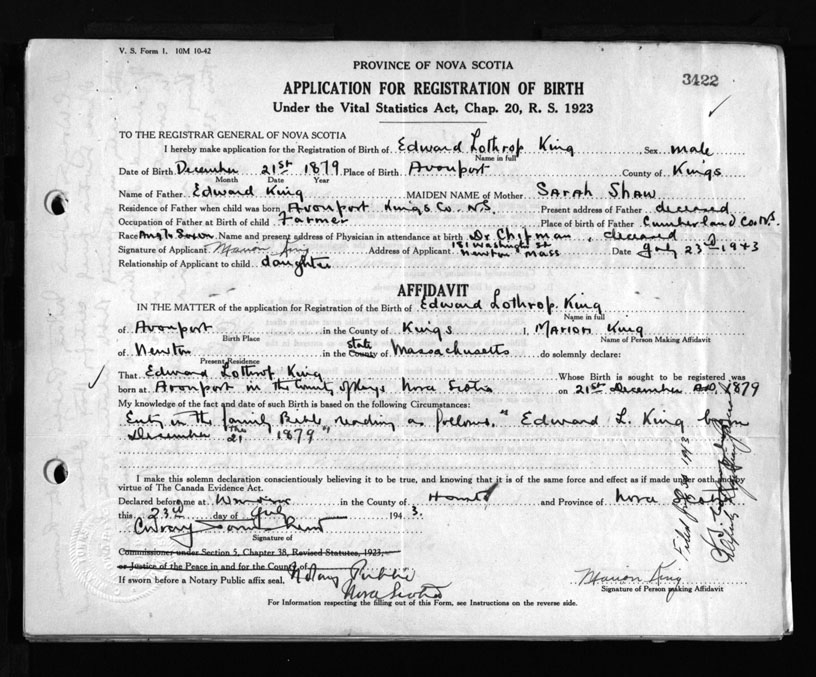 V. S. Form 1. 10M 10-42
PROVINCE OF NOVA SCOTIA
3422
APPLICATION FOR REGISTRATION OF BIRTH
Under the Vital Statistics Act, Chap. 20, R. S. 1923
TO THE REGISTRAR GENERAL OF NOVA SCOTIA
I hereby make application for the Registration of Birth of Edward Lothrop King Sex male
Name in full
Date of Birth December 21st 1879 Place of Birth Avonport County of Kings
Month Date Year
Name of Father Edward King MAIDEN NAME of Mother Sarah Shaw
Residence of Father when child was born Avonport Kings Co. N.S. Present address of Father deceased
Occupation of Father at Birth of child Farmer Place of birth of Father Cumberland Co. N.S.
Race Anglo Saxon Name and present address of Physician in attendance at birth Dr Chipman, deceased
Signature of Applicant Marion King Address of Applicant 181 Washington St Newton Mass Date July 23rd 1943
Relationship of Applicant to child daughter
AFFIDAVIT
IN THE MATTER of the application for Registration of the Birth of Edward Lothrop King
Name in full
of Avonport in the County of Kings I, Marion King
Birth Place Name of Person Making Affidavit
of Newton in the County of state Massachusetts do solemnly declare:
Present Residence
That Edward Lothrop King Whose Birth is sought to be registered was
born at Avonport in the County of Kings Nova Scotia on 21st December A.D. 1879
My knowledge of the fact and date of such Birth is based on the following Circumstances:
Entry in the family Bible, reading as follows. "Edward L. King born
December 21 1879"
I make this solemn declaration conscientiously believing it to be true, and knowing that it is of the same force and effect as if made under oath and by
virtue of The Canada Evidence Act.
Declared before me at Windsor in the County of Hants and Province of Nova Scotia
this 23rd day of July 1943.
Signature of
Commissioner under Section 5, Chapter 38, Revised Statutes, 1923,
or Justice of the Peace in and for the County of
Notary Public
Nova Scotia
If sworn before a Notary Public affix seal.
Marion King
Signature of Person making Affidavit
For Information respecting the filling out of this Form, see Instructions on the reverse side.